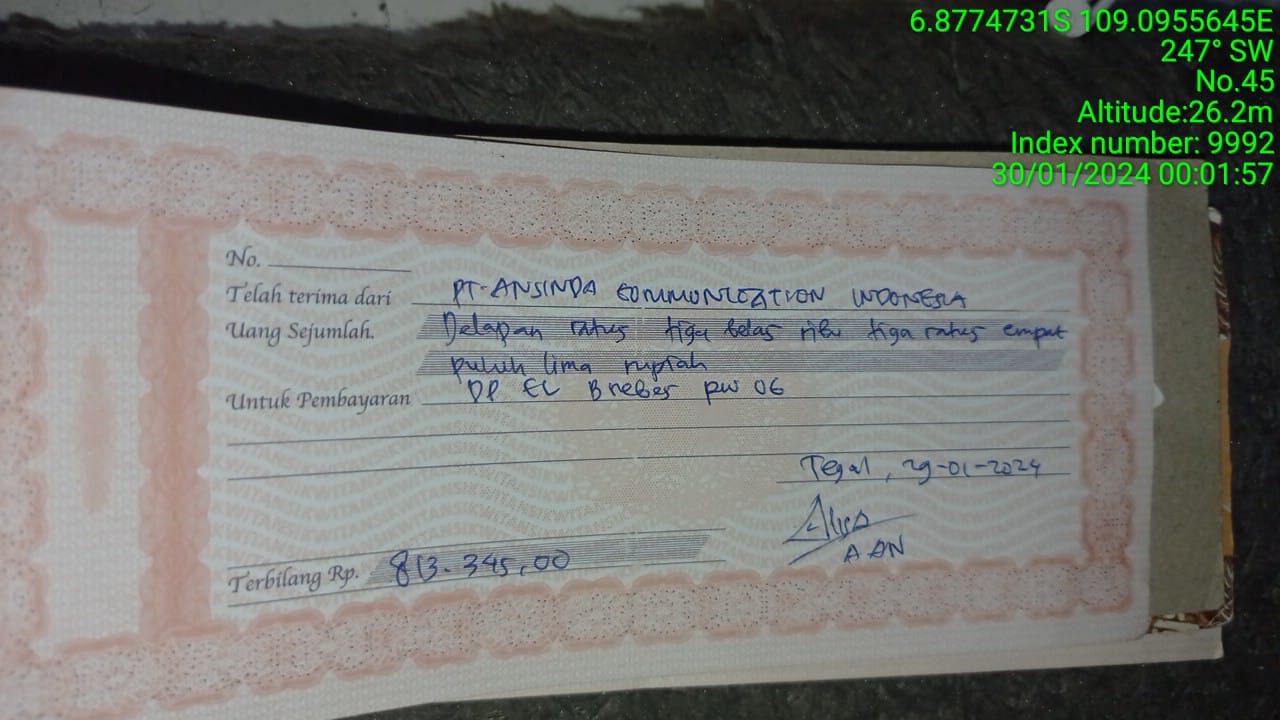 6.8774731S 109.0955645E
247° SW
No.45
Altitude:26.2m
Index number: 9992
30/01/2024 00:01:57
No.
Telah terima dari PT-ANSINDA COMMUNICATION INDONESIA
Uang Sejumlah. Delapan ratus tiga belas ribu tiga ratus empat
puluh lima rupiah
Untuk Pembayaran DP EC Brebes pw 06
Tegal, 29-01-2024
AAN
Terbilang Rp. 813.345,00